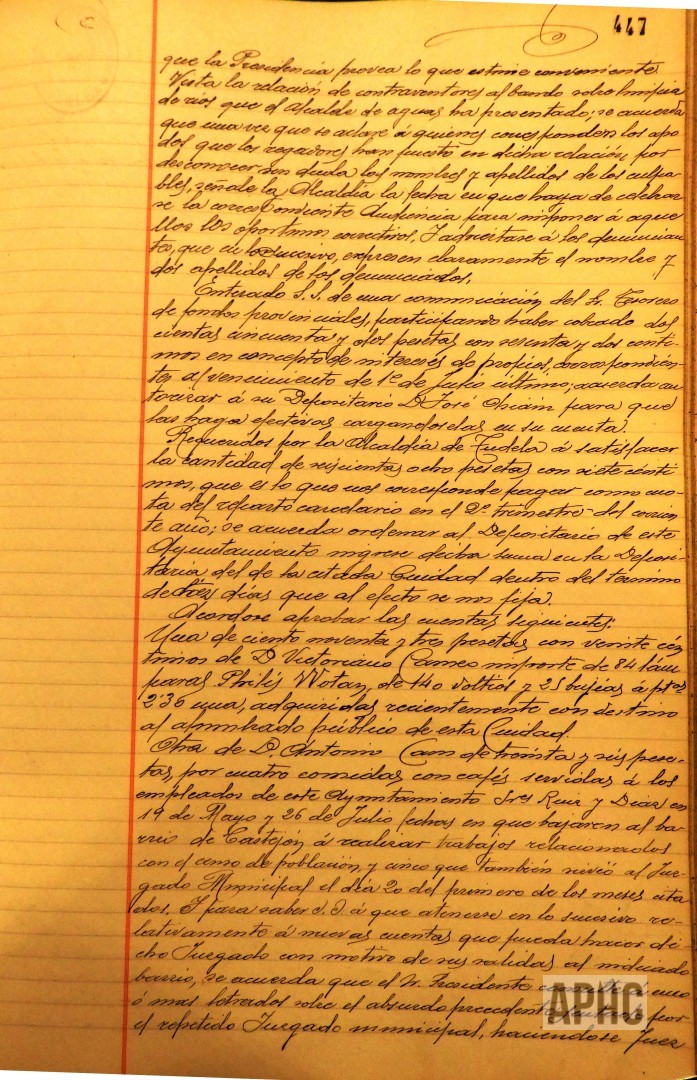 447
que la Presidencia provea lo que estime conveniente.
Vista la relación de contraventores al bando sobre limpia
de rios que el Alcalde de aguas ha presentado; se acuerda
que una vez que se aclare á quiénes corresponden los apo
dos que los regadores han puesto en dicha relación, por
desconocer sin duda los nombres y apellidos de los culpa
bles, señale la Alcaldía la fecha en que haya de celebrar
se la correspondiente Audiencia para imponer á aque
llos los oportunos correctivos. Y adviertase á los denuncian
tes, que en lo sucesivo, expresen claramente el nombre y
dos apellidos de los denunciados.
Enterado S.S. de una comunicación del Sr. Tesorero
de fondos provinciales, participando haber cobrado dos
cientas cincuenta y dos pesetas con sesenta y dos centi
mos en concepto de intereses de propios, correspondien
tes al vencimiento de 1º de Julio último; acuerda au
torizar á su Depositario D. José para que
las haga efectivas cargandoselas en su cuenta.
Requeridos por la Alcaldía de Tudela á satisfacer
la cantidad de seiscientas ocho pesetas con siete cénti
mos, que es lo que nos corresponde pagar como cuo
ta del reparto carcelario en el 2º trimestre del corrien
te año; se acuerda ordenar al Depositario de este
Ayuntamiento ingrese dicha suma en la Deposi
taria del de la citada Ciudad dentro del termino
de diez días que al efecto se nos fija.
Acordose aprobar las cuentas siguientes:
Una de ciento noventa y tres pesetas con veinte cén
timos de D. Victoriano importe de 84 lám
paras Philis Wotan, de 140 voltios y 25 bujías á ptas
2'30 una, adquiridas recientemente con destino
al alumbrado público de esta Ciudad.
Otra de D. Antonio de treinta y seis pese-
tas, por cuatro comidas con cafés servidas á los
empleados de este Ayuntamiento Sres Ruiz y Diaz en
19 de Mayo y 26 de Julio fechas en que bajaron al ba-
rrio de Castejón á realizar trabajos relacionados
con el censo de población, y cinco que también sirvió al Juz-
gado Municipal el día 20 del primero de los meses cita
dos. Y para saber S.S. á que atenerse en lo sucesivo re-
lativamente á nuevas cuentas que pueda hacer di
cho Juzgado con motivo de sus salidas al indicado
barrio, se acuerda que el Sr. Presidente consulte á uno
ó mas letrados sobre el absurdo precedente por
el repetido Juzgado municipal, haciendose Juez
APHC